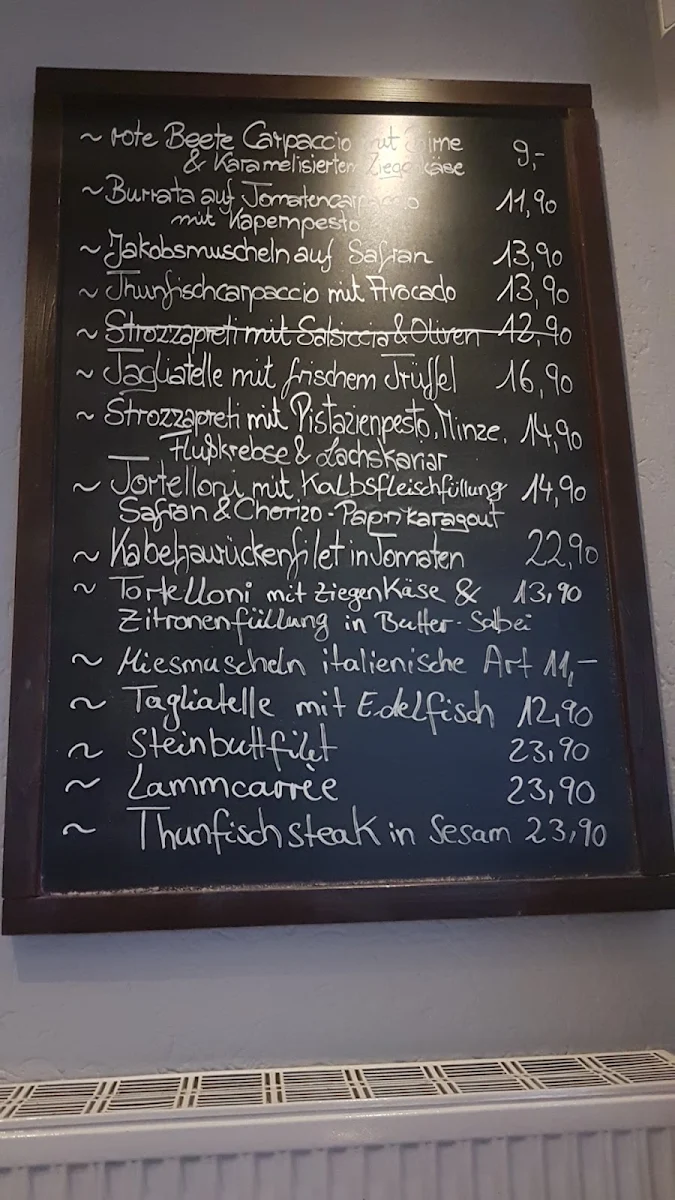 ~ rote Beete Carpaccio mit Crime 9,-
& Karamelisierten Ziegenkäse
~ Burrata auf Tomatencarpaccio 11,90
mit Kapernpesto
~ Jakobsmuscheln auf Safran 13,90
~ Thunfischcarpaccio mit Avocado 13,90
~ Strozzapreti mit Salsiccia & Oliven 12,90
~ Tagliatelle mit frischem Trüffel 16,90
~ Strozzapreti mit Pistazienpesto, Minze, 14,90
Flußkrebse & Lachskaviar
~ Tortelloni mit Kalbsfleischfüllung 14,90
Safran & Chorizo-Paprikaragout
~ Kabeljaurückenfilet in Tomaten 22,90
~ Tortelloni mit Ziegenkäse & 13,90
Zitronenfüllung in Butter-Salbei
~ Miesmuscheln italienische Art 11,-
~ Tagliatelle mit Edelfisch 12,90
~ Steinbuttfilet 23,90
~ Lammcarrèe 23,90
~ Thunfischsteak in Sesam 23,90